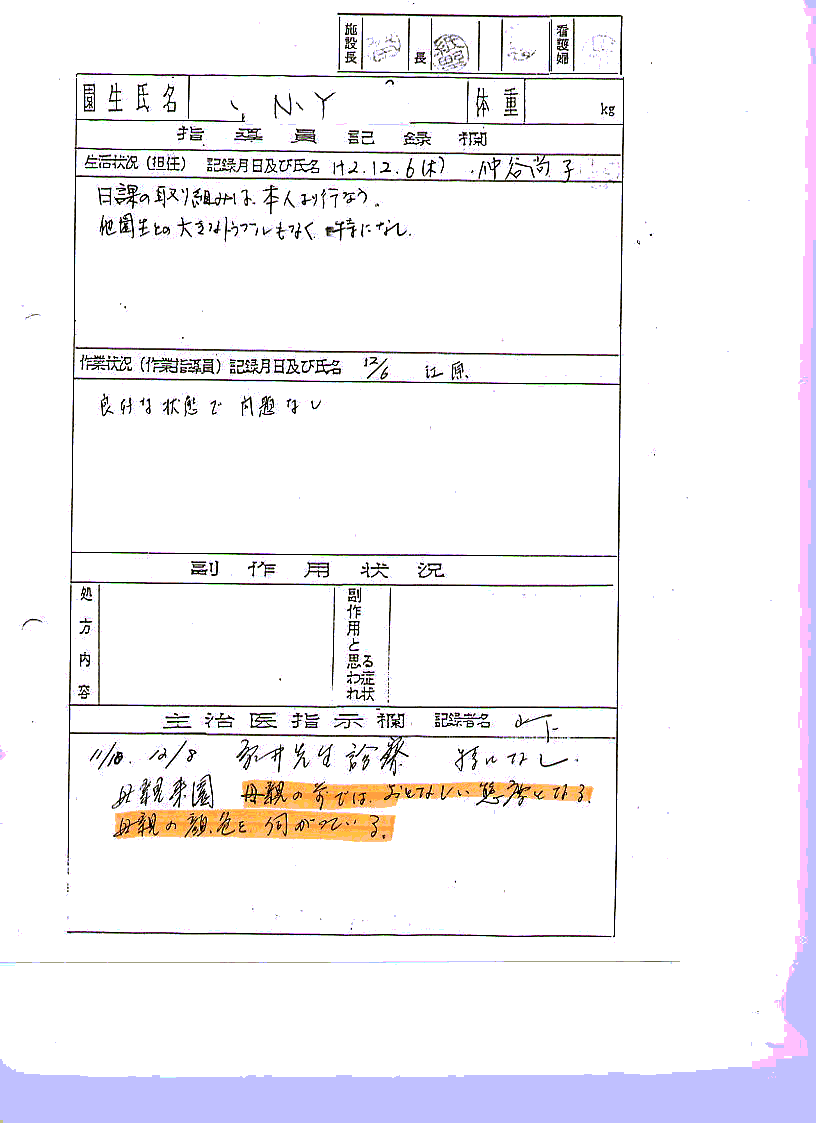 施設長 長 看護婦
園生氏名 N、Y 体重 kg
指導員記録欄
生活状況(担任) 記録月日及び氏名 H2.12.6(木) 仲谷尚子
日課の取り組みは、本人より行なう。
他園生との大きなトラブルもなく、特になし。
作業状況(作業指導員)記録月日及び氏名 12/6 江原
良好な状態で 問題なし
副作用状況
処方内容
副作用と思われる症状
主治医指示欄 記録者名 山下
12/8 先生診察 特になし.
母親来園 母親の前では、おとなしい態度となる。
母親の顔色を、伺がっている。